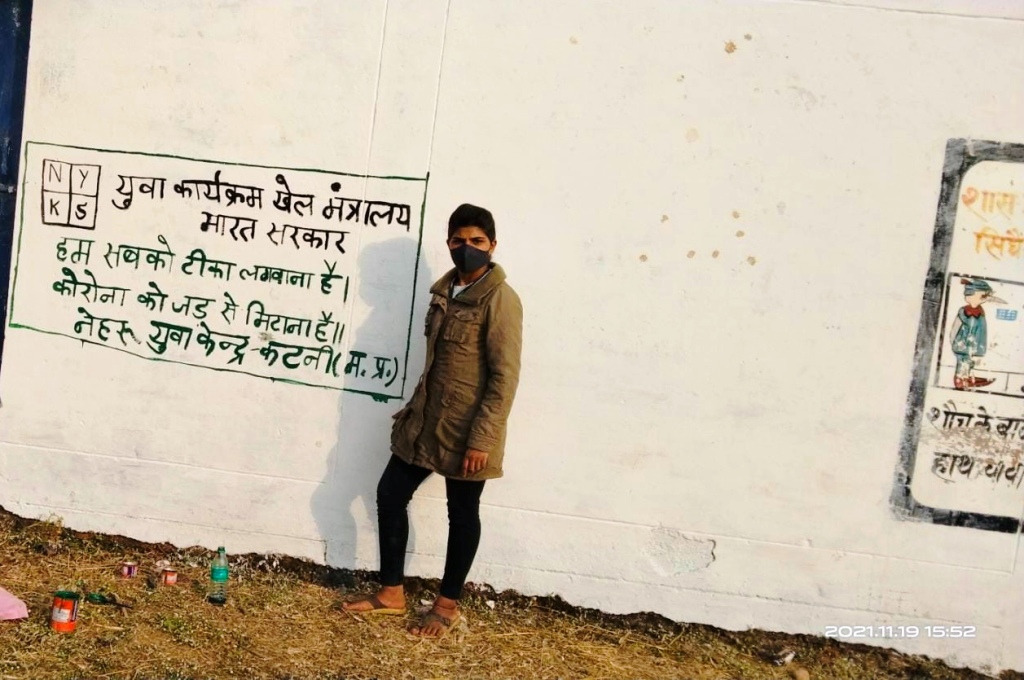 N Y
K S
युवा कार्यक्रम खेल मंत्रालय
भारत सरकार
हम सबको टीका लगवाना है।
कोरोना को जड़ से मिटाना है॥
नेहरू युवा केन्द्र-कटनी(म. प्र.)
शौच के बाद
हाथ
2021.11.19 15:52